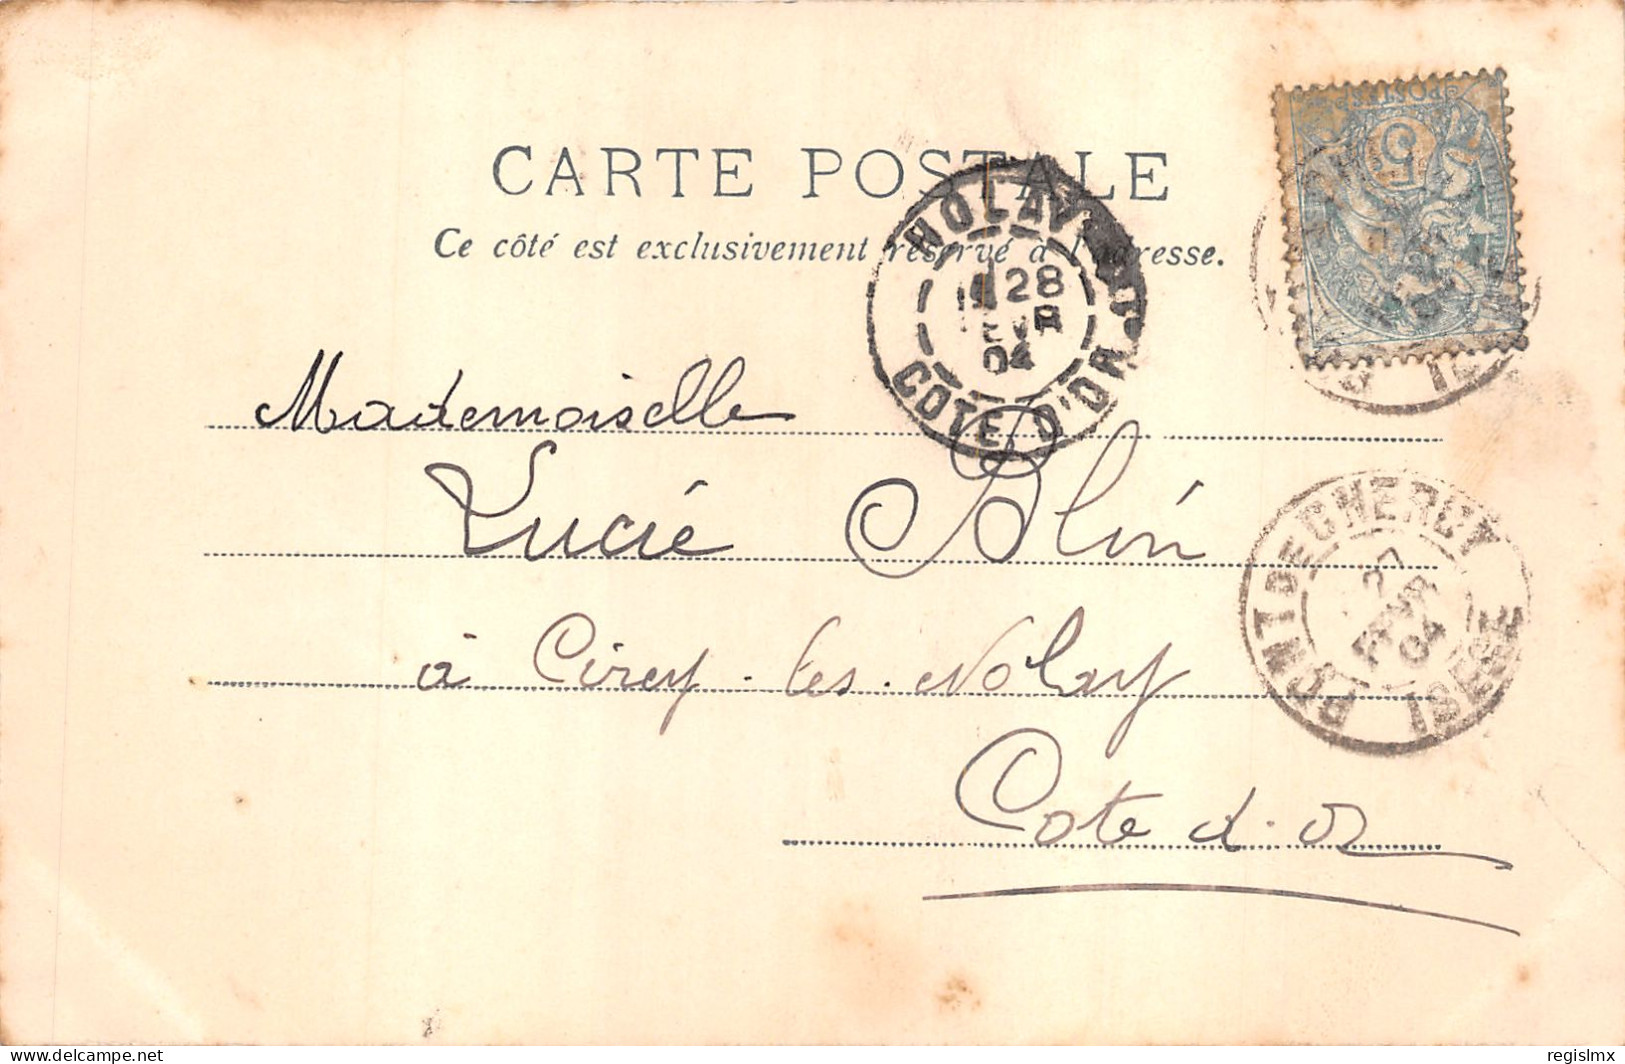 CARTE POSTALE
Ce côté est exclusivement réservé à l'adresse.
NOLAY
28
FEVR
04
COTE D'OR
POSTES
5
Mademoiselle
Lucie Blin
à Cirey-les-Nolay
Cote d'or
PONT DE CHERUY
27
FEVR
04
ISERE
delcampe.net
regislmx